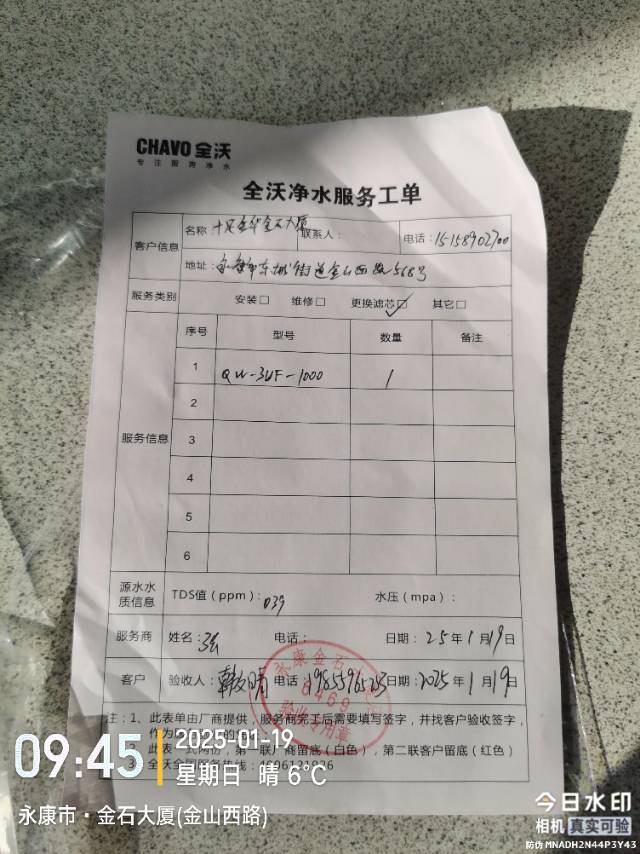 CHAVO 全沃
专注服务净水
全沃净水服务工单
客户信息
名称 十足金华金石大厦 联系人: 电话: 15158902700
地址: 永康市东城街道金山西路568号
服务类别 安装□ 维修□ 更换滤芯☑ 其它□
服务信息
序号 型号 数量 备注
1 QW-3UF-1000 1
2
3
4
5
6
源水水质信息 TDS值(ppm): 039 水压(mpa):
服务商 姓名: 张 电话: 日期: 25年1月19日
客户 验收人: 电话: 日期: 2025年1月19日
永康金石
8469
验收专用章
注:1、此表单由厂商提供,服务商完工后需要填写签字,并找客户验收签字,
此表一式两份,第一联厂商留底(白色),第二联客户留底(红色)
3、全沃全国服务热线:
09:45
2025-01-19
星期日 晴 6℃
永康市·金石大厦(金山西路)
今日水印
相机 真实可验
防伪 MNADH2N44P3Y43